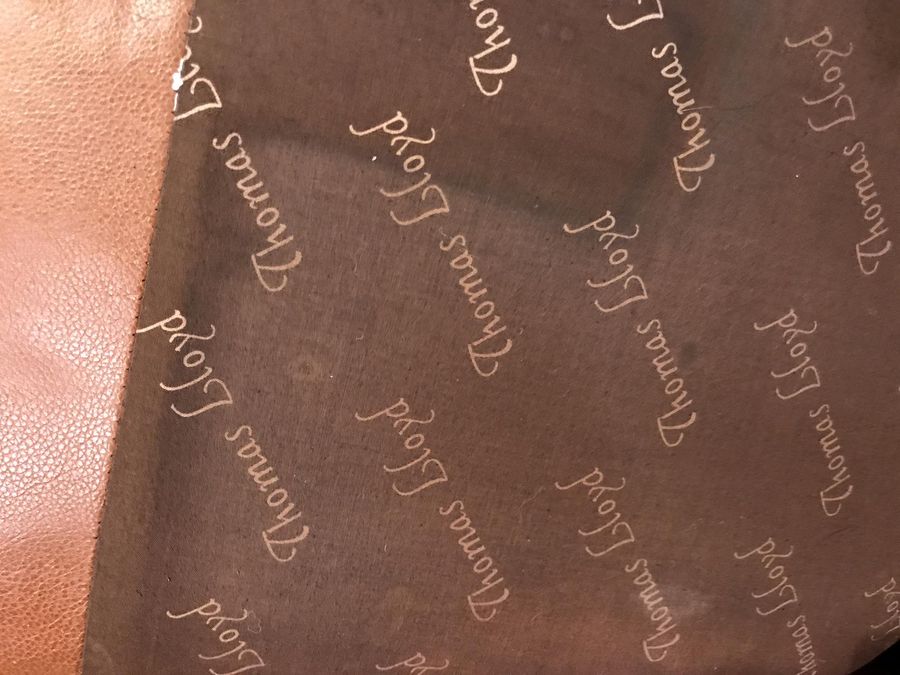 Thomas
Tho
Thomas L
Thomas Lloyd
Thomas Lloyd
Thomas Lloyd
Thomas Lloyd
Thomas Lloyd
Thomas Lloyd
Thomas Lloyd
Thomas Lloyd
Lloyd
Lloyd